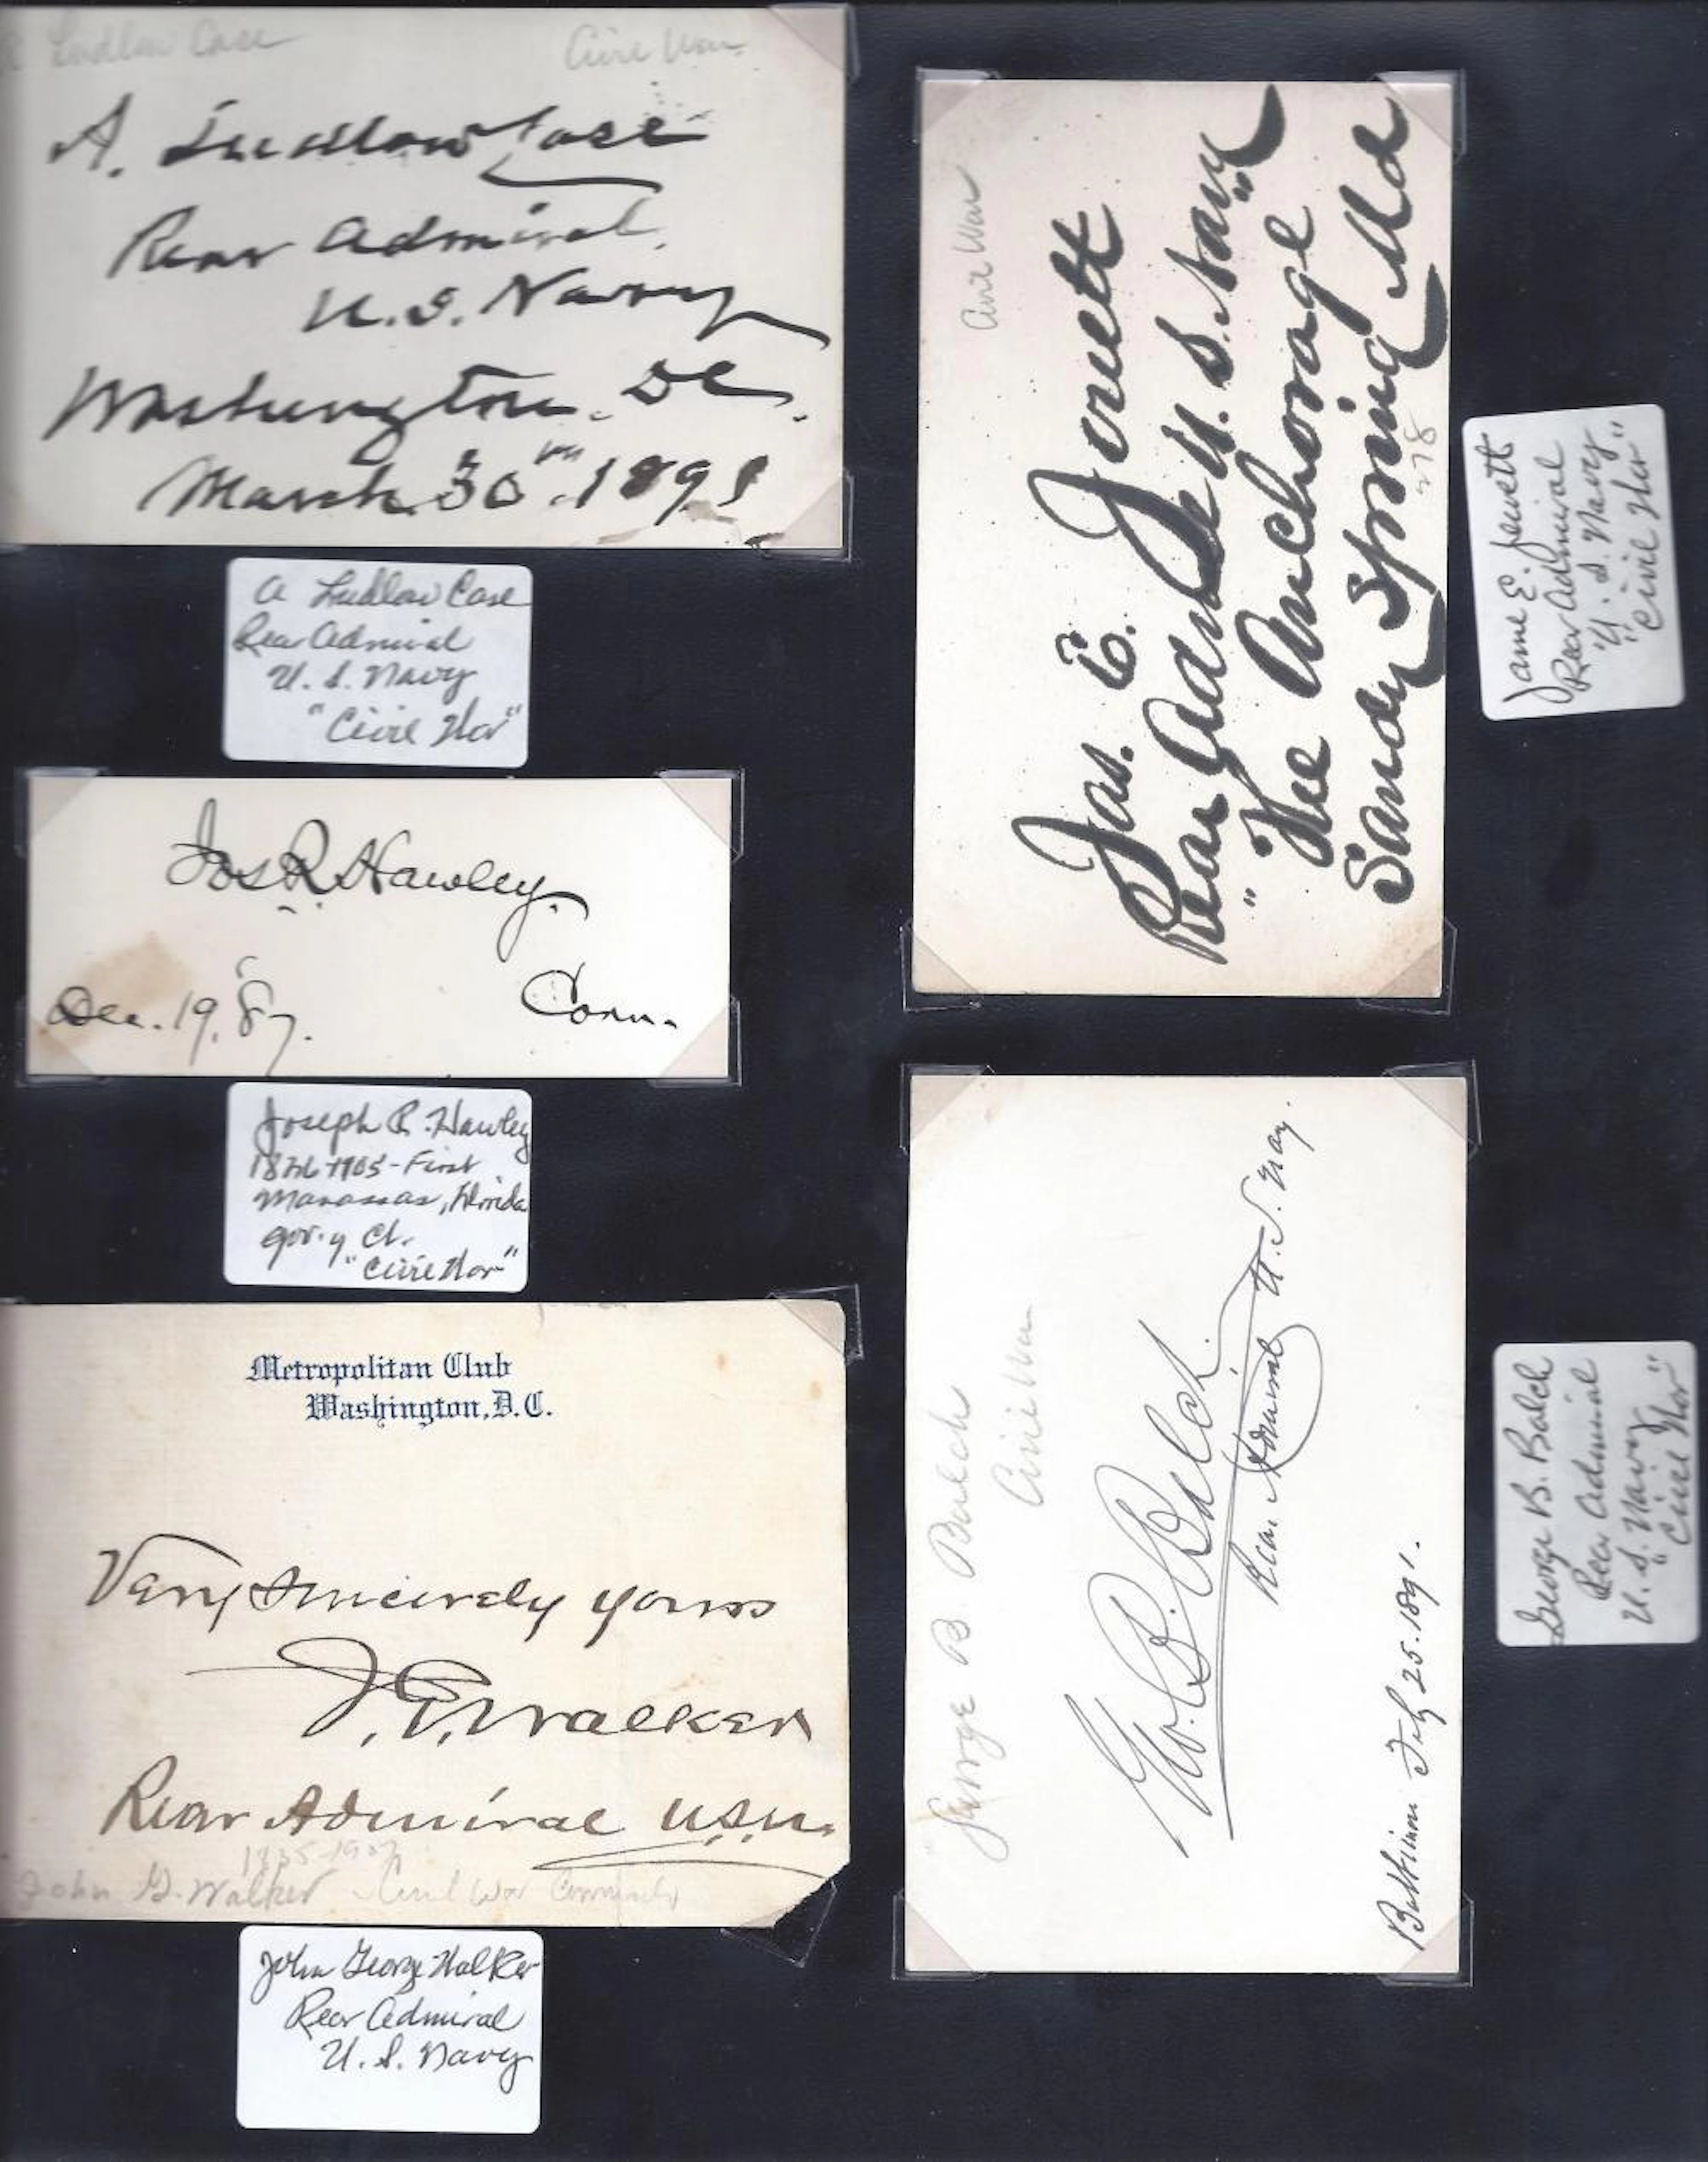 Ludlow Case Civil War
A. Ludlow Case
Rear Admiral,
U.S. Navy
Washington. DC.
March 30th. 1891
A Ludlow Case
Rear Admiral
U. S. Navy
"Civil War"
Jos R Hawley.
Dec. 19, '87. Conn.
Joseph R. Hawley
1826-1905 - First
Manassas, Florida
gov. of Ct.
"Civil War"
Metropolitan Club
Washington, D.C.
Very sincerely yours
J. G. Walker
Rear Admiral U.S.N.
1835-1907
John G. Walker - Civil War
John George Walker
Rear Admiral
U. S. Navy
Civil War
Jas. E. Jouett
Rear Adml U. S. Navy
"The Anchorage"
Sandy Spring Md
278
Jame E. Jouett
Rear Admiral
U. S. Navy
"Civil War"
George B. Balch
Civil War
Geo. B. Balch.
Rear Admiral U. S. Navy.
July 25. 1891.
George B. Balch
Rear Admiral
U. S. Navy
"Civil War"